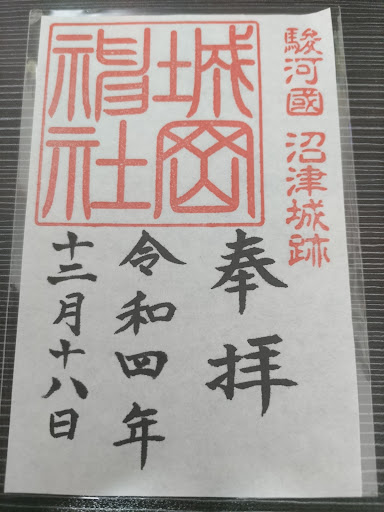 駿河國 沼津城跡
城岡
神社
奉拝
令和四年
十二月十八日